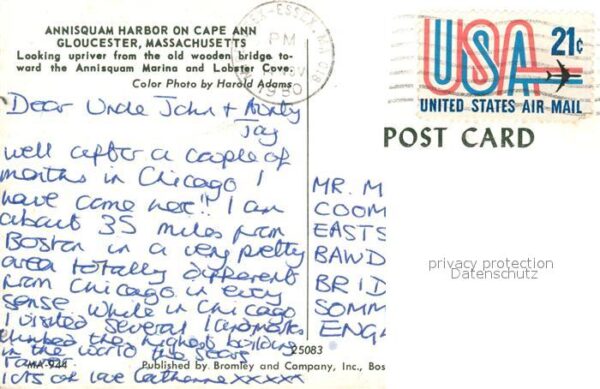 ANNISQUAM HARBOR ON CAPE ANN
GLOUCESTER, MASSACHUSETTS
Looking upriver from the old wooden bridge to-
ward the Annisquam Marina and Lobster Cove.
Color Photo by Harold Adams
PM
1980
USA 21¢
UNITED STATES AIR MAIL
POST CARD
Dear Uncle John + Aunty
Joy
well after a couple of
months in Chicago I
have come here!! I am
about 35 miles from
Boston in a very pretty
area totally different
from Chicago in every
sense. While in Chicago
I visited several landmarks
climbed the highest building
in the world the Sears
Tower.
lots of love Catherine xxxxx
MR. M
COOM
EASTS
BAWD
BRID
SOMM
ENGA
privacy protection
Datenschutz
25083
MA-944
Published by Bromley and Company, Inc., Bos